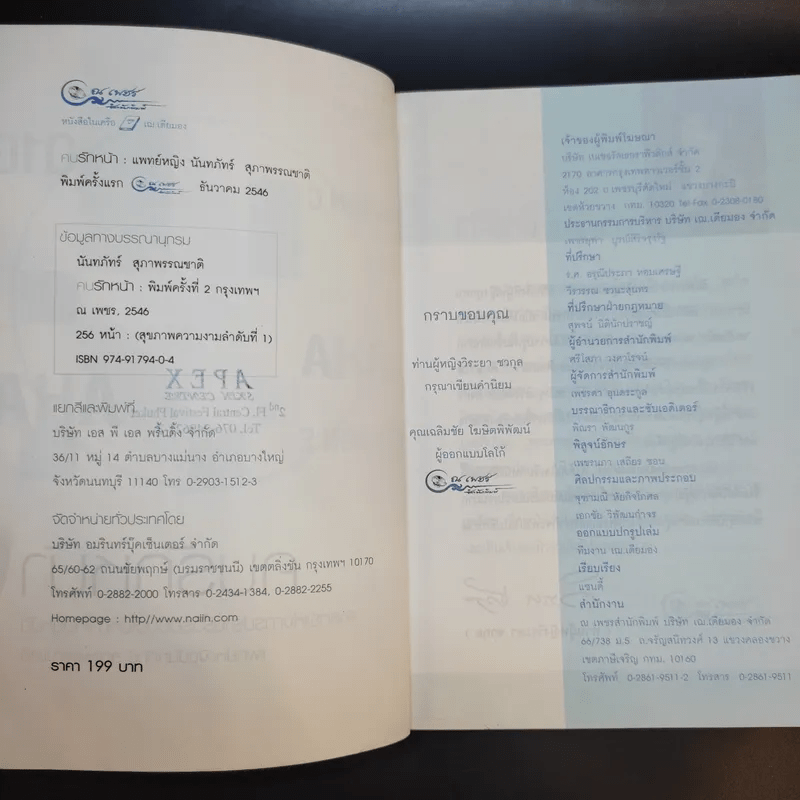 ณ เพชร
หนังสือในเครือ เฌ.เดียมอง
คนรักหน้า : แพทย์หญิง นันทภัทร์ สุภาพรรณชาติ
พิมพ์ครั้งแรก ณ เพชร ธันวาคม 2546
ข้อมูลทางบรรณานุกรม
นันทภัทร์ สุภาพรรณชาติ
คนรักหน้า : พิมพ์ครั้งที่ 2 กรุงเทพฯ
ณ เพชร, 2546
256 หน้า : (สุขภาพความงามลำดับที่ 1)
ISBN 974-91794-0-4
APEX
SKIN CENTRE
2nd Fl. Central Festival Phuket
Tel. 076
แยกสีและพิมพ์ที่
บริษัท เอส พี เอส พริ้นติ้ง จำกัด
36/11 หมู่ 14 ตำบลบางแม่นาง อำเภอบางใหญ่
จังหวัดนนทบุรี 11140 โทร 0-2903-1512-3
จัดจำหน่ายทั่วประเทศโดย
บริษัท อมรินทร์บุ๊คเซ็นเตอร์ จำกัด
65/60-62 ถนนชัยพฤกษ์ (บรมราชชนนี) เขตตลิ่งชัน กรุงเทพฯ 10170
โทรศัพท์ 0-2882-2000 โทรสาร 0-2434-1384, 0-2882-2255
Homepage : http//www.naiin.com
ราคา 199 บาท
กราบขอบคุณ
ท่านผู้หญิงวิระยา ชวกุล
กรุณาเขียนคำนิยม
คุณเฉลิมชัย โฆษิตพิพัฒน์
ผู้ออกแบบโลโก้
ณ เพชร
เจ้าของผู้พิมพ์โฆษณา
บริษัท จำกัด
2170 อาคารกรุงเทพทาวเวอร์ชั้น 2
ห้อง 202 ถ.เพชรบุรีตัดใหม่ แขวงบางกะปิ
เขตห้วยขวาง กทม. 10320 Tel-Fax 0-2308-0180
ประธานกรรมการบริหาร บริษัท เฌ.เดียมอง จำกัด
ที่ปรึกษา
ที่ปรึกษาฝ่ายกฎหมาย
สุพจน์ นิตินักปราชญ์
ผู้อำนวยการสำนักพิมพ์
ศรีโสภา วงศาโรจน์
ผู้จัดการสำนักพิมพ์
เพชรดา อุมตระกูล
บรรณาธิการและซับเอดิเตอร์
พิณรา พัฒนกูร
พิสูจน์อักษร
ศิลปกรรมและภาพประกอบ
ออกแบบปกรูปเล่ม
ทีมงาน เฌ.เดียมอง
เรียบเรียง
แซนดี้
สำนักงาน
ณ เพชรสำนักพิมพ์ บริษัท เฌ.เดียมอง จำกัด
68/738 ม.5 ถ.จรัญสนิทวงศ์ 13 แขวงคลองขวาง
เขตภาษีเจริญ กทม. 10160
โทรศัพท์ 0-2861-9511-2 โทรสาร 0-2861-9511